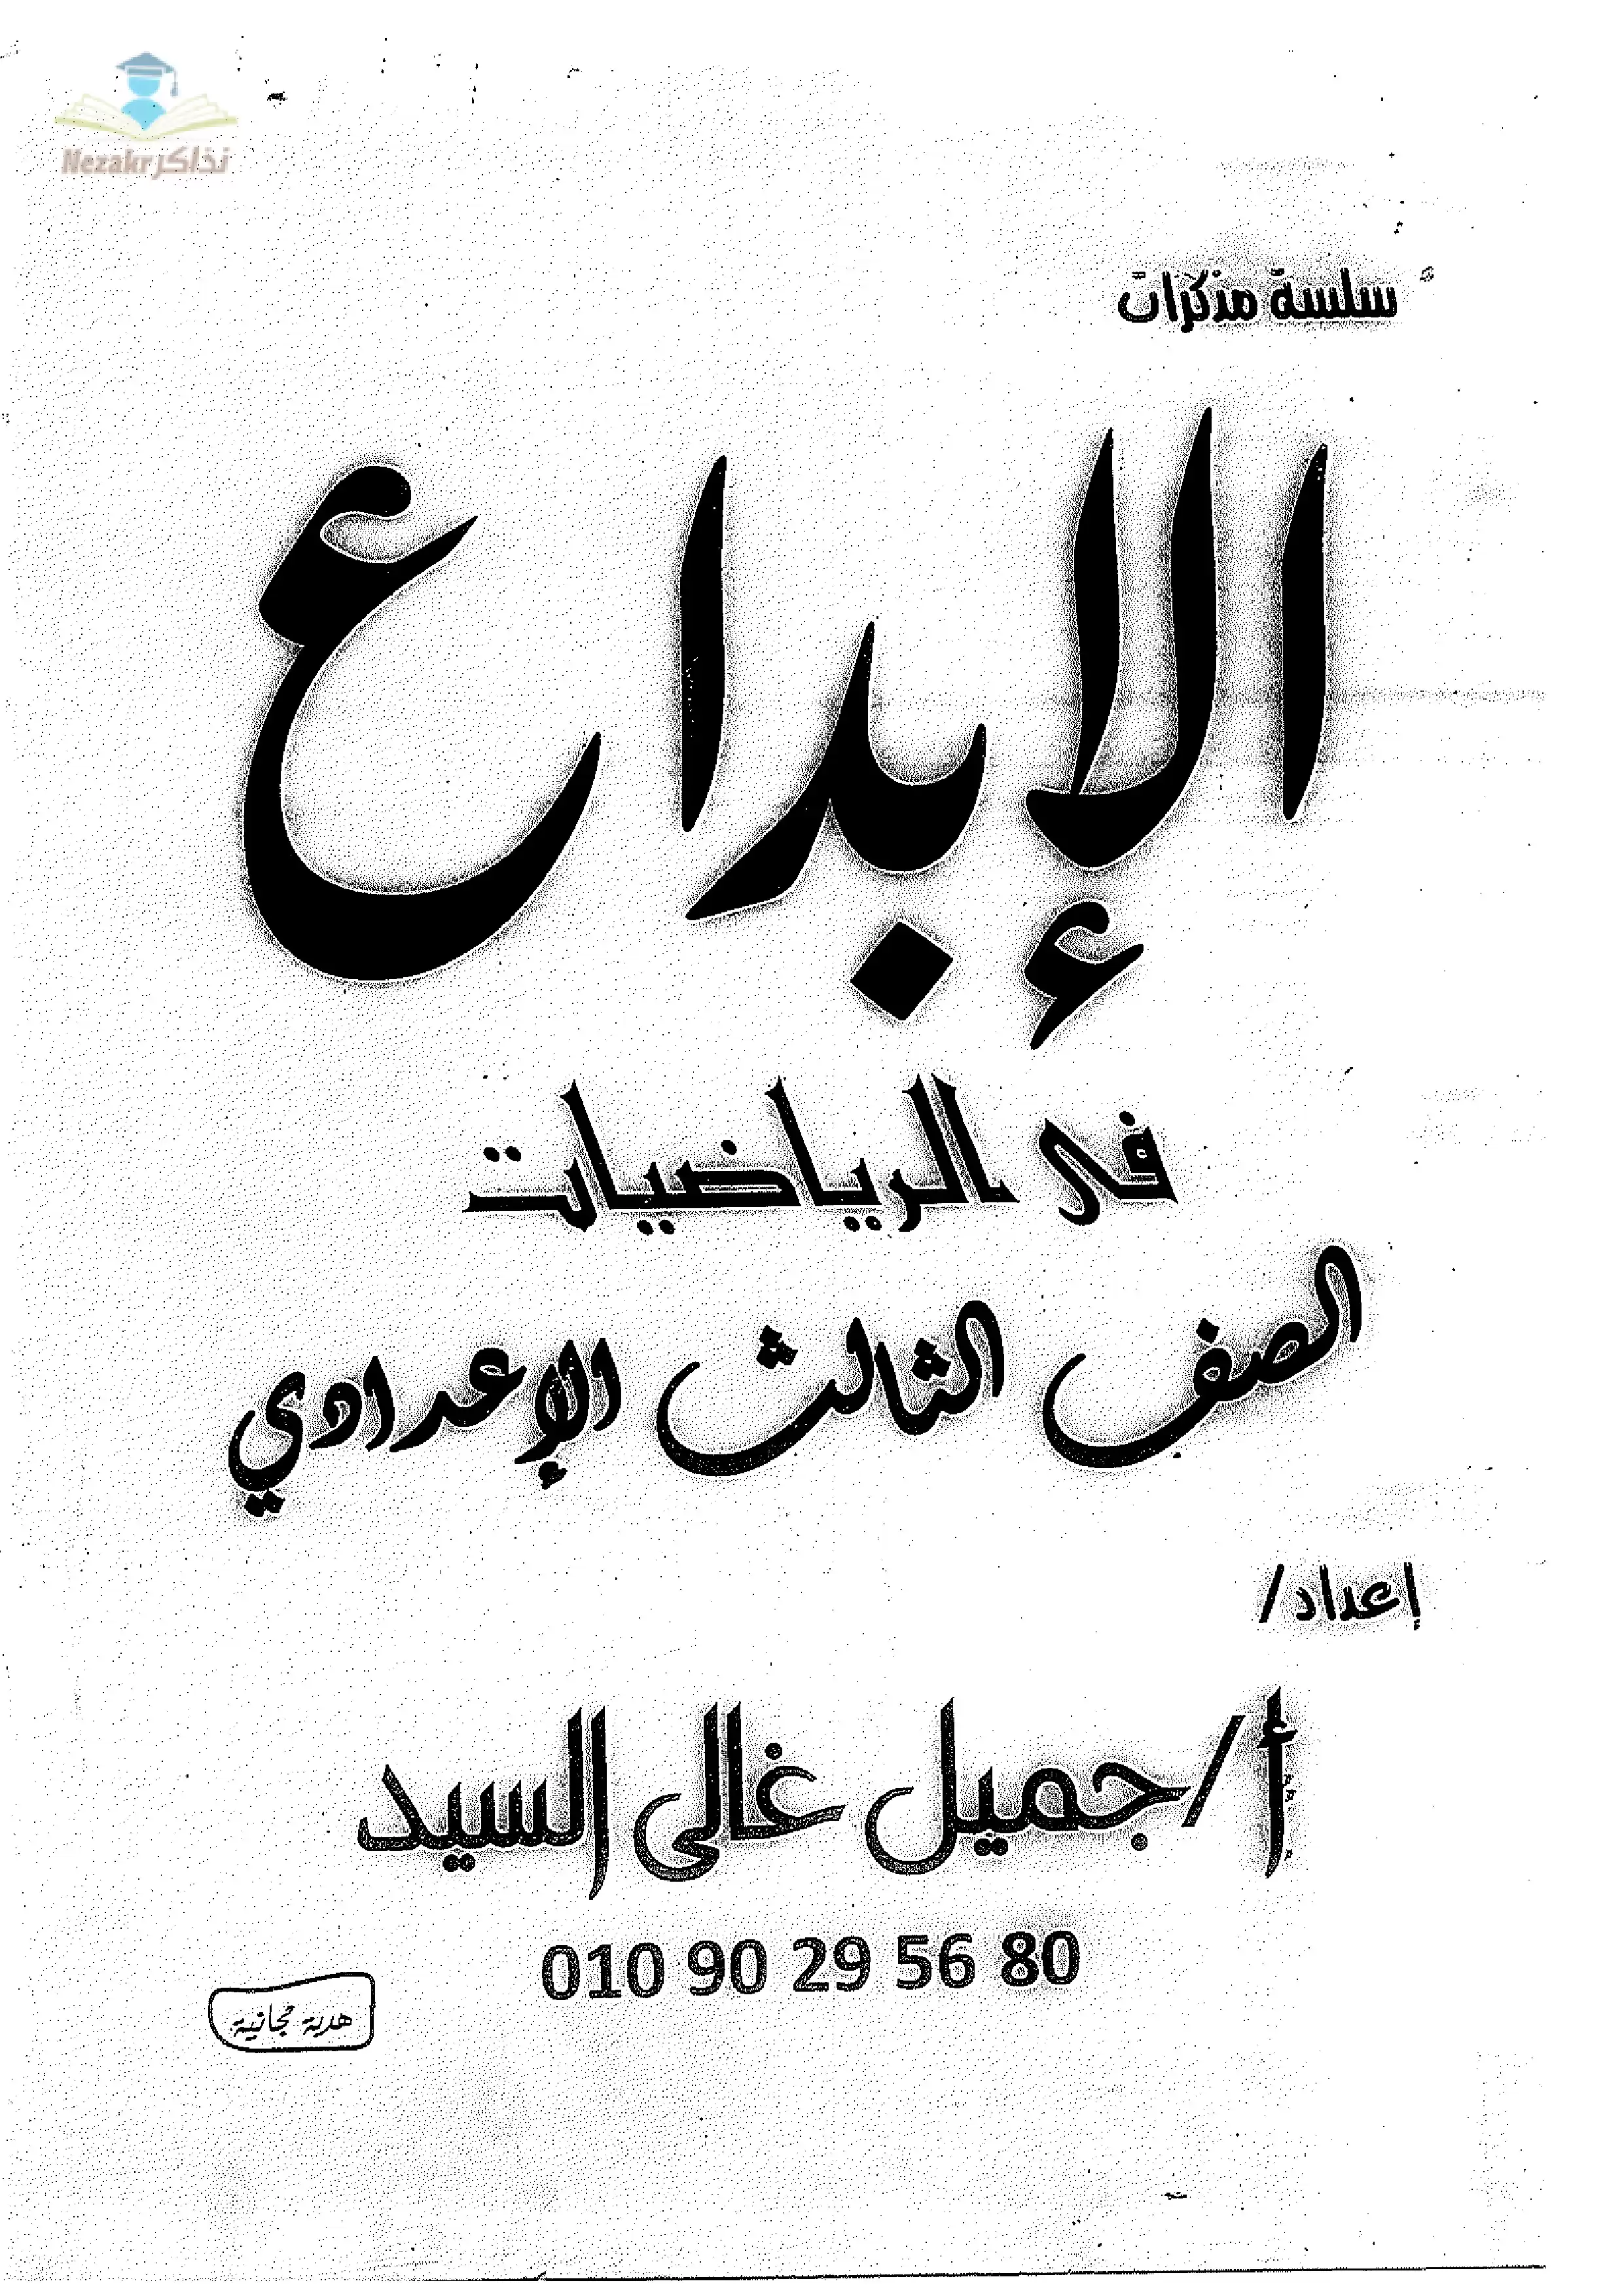 Nezakr نذاكر
سلسة مذكرات
الإبداع
فى الرياضيات
الصف الثالث الإعدادي
إعداد/
أ/جميل غالى السيد
010 90 29 56 80
هدية مجانية